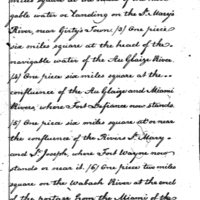 miles square at the head of the navi-
gable water or landing on the St. Mary's
River, near Girty's Town: (3) One piece
six miles square at the head of the
navigable water of the Au Glaize River.
(4) One piece six miles square at the
confluence of the Au Glaize and Miami
Rivers, where Fort Defiance now stands.
(5) One piece six miles square at or near
the confluence of the Rivers St. Mary
and St. Joseph, where Fort Wayne now
stands or near it. (6) One piece two miles
square on the Wabash River at the end
of the portage from the Miami of the